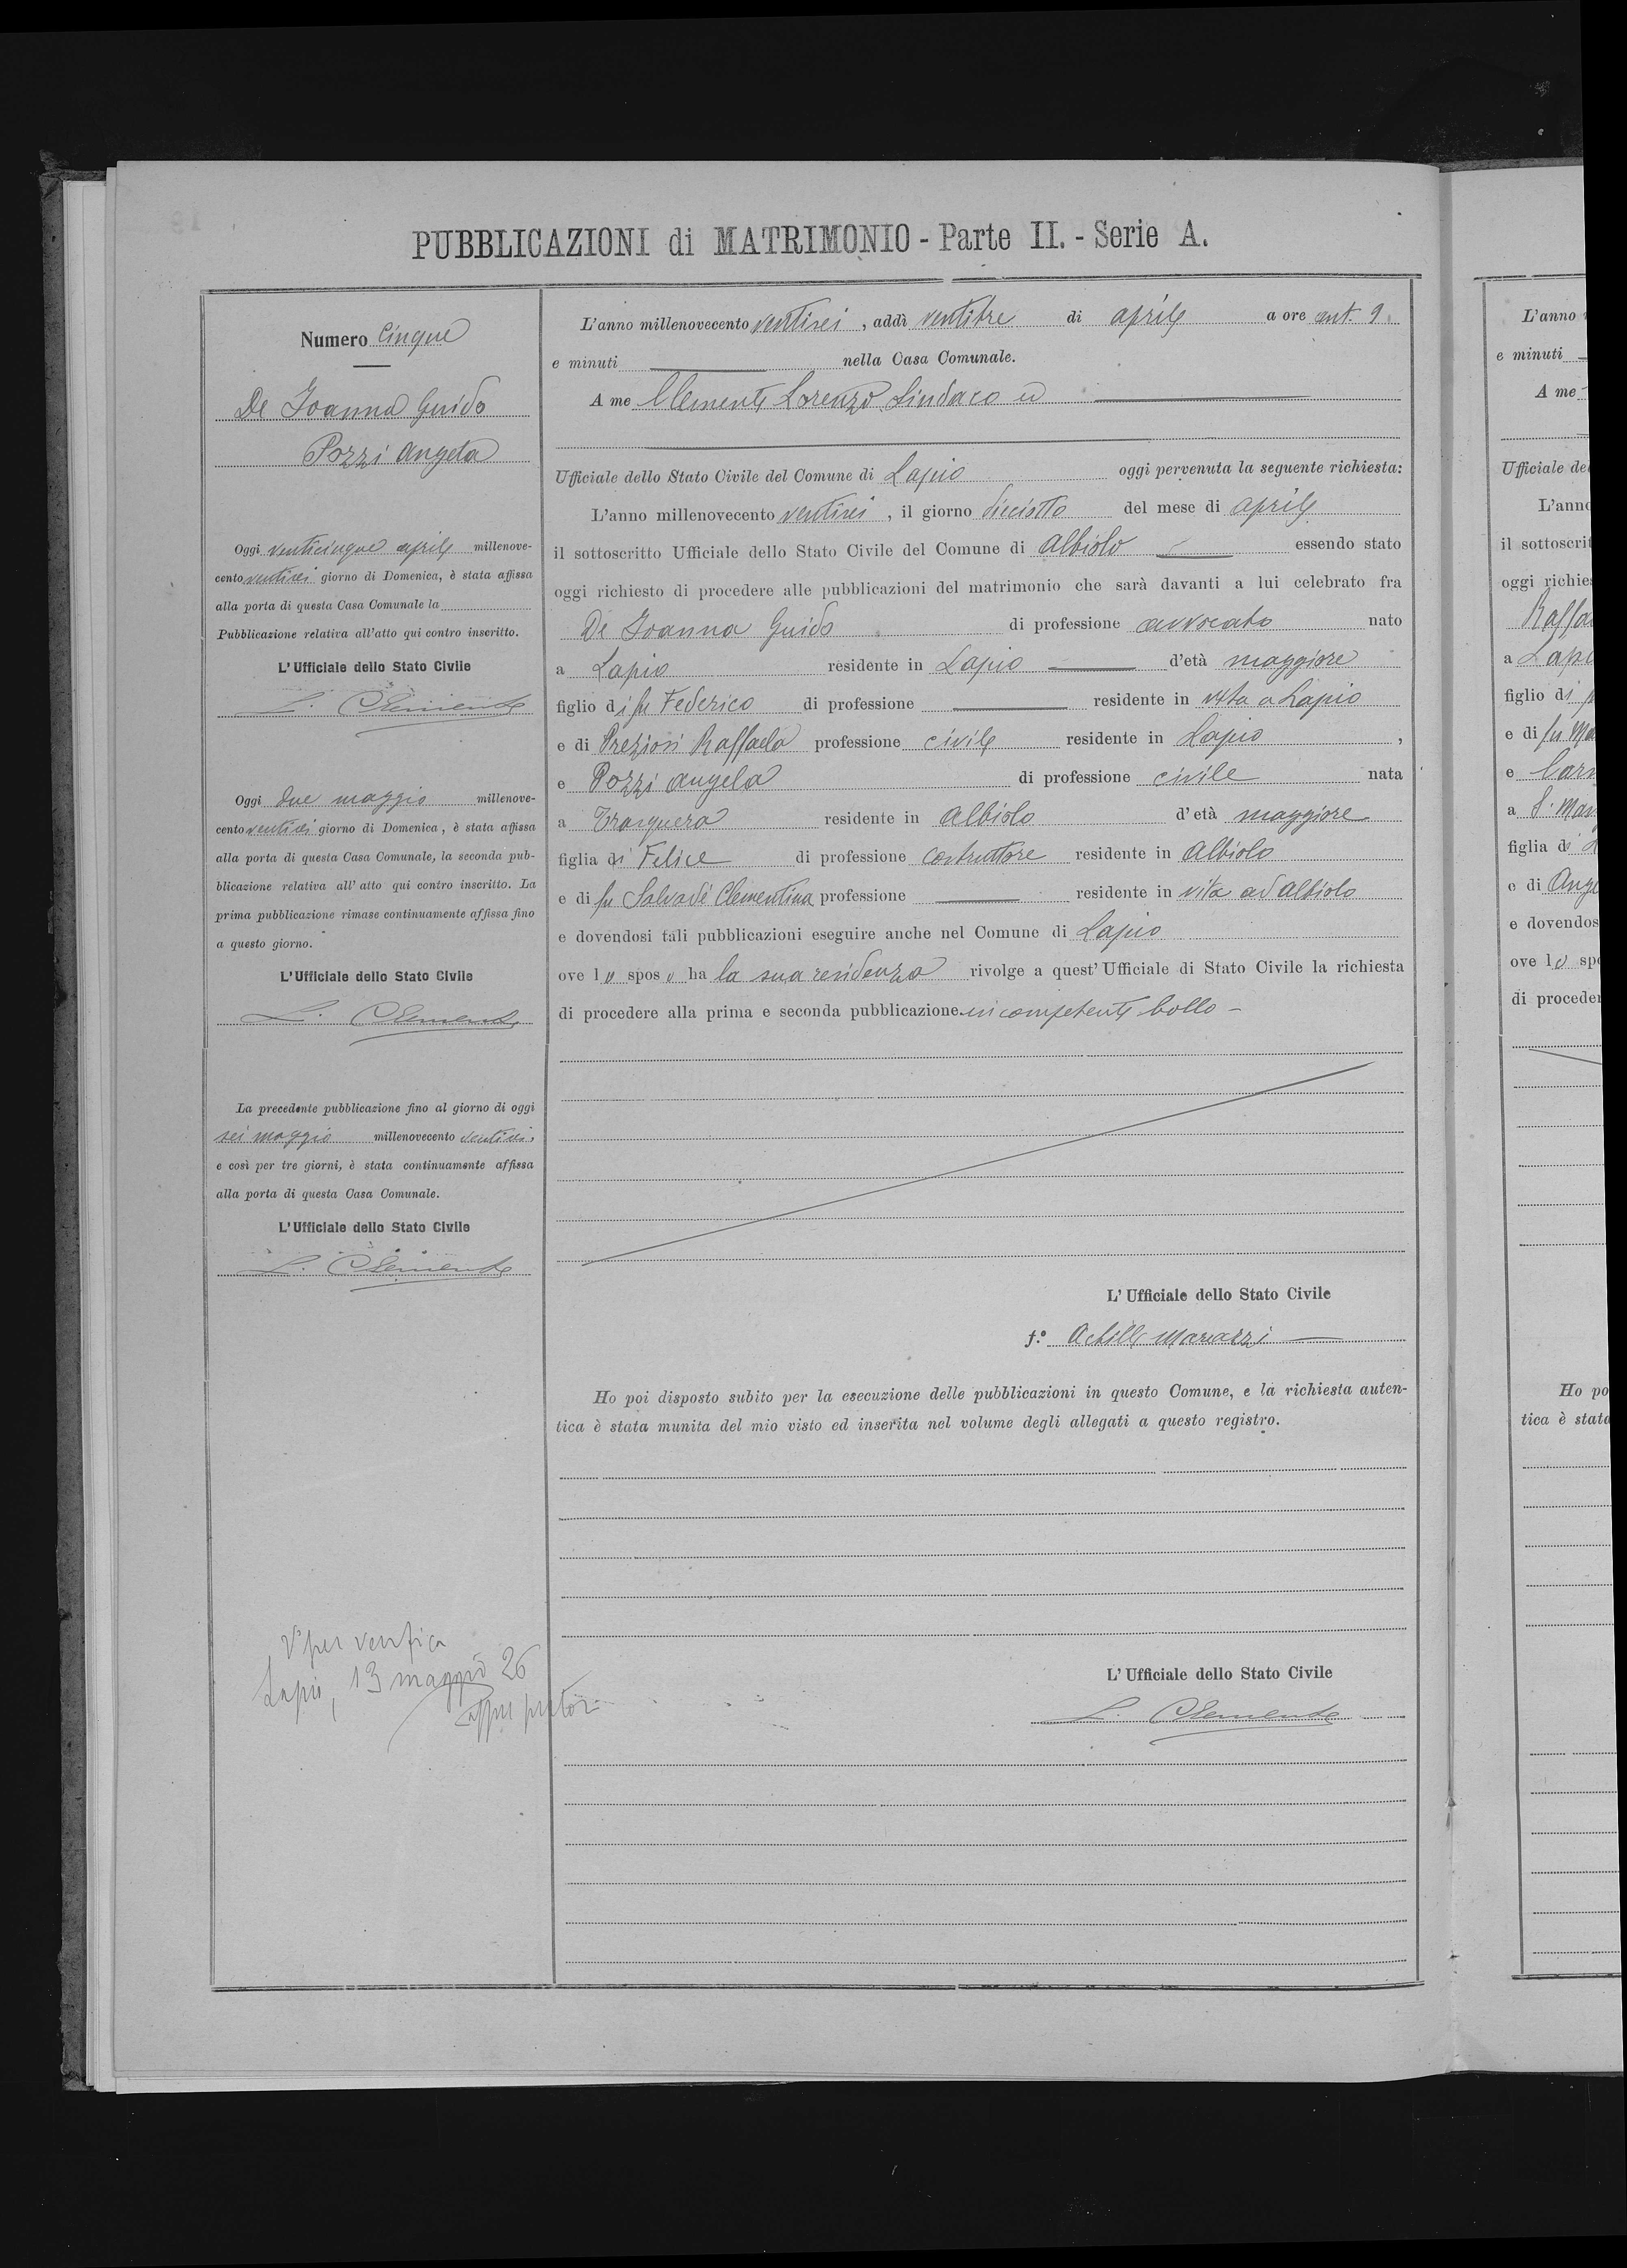 PUBBLICAZIONI di MATRIMONIO - Parte II. - Serie A.
Numero Cinque
De Joanna Guido
Pozzi Angela
Oggi venticinque aprile millenove-
cento ventisei giorno di Domenica, è stata affissa
alla porta di questa Casa Comunale la
Pubblicazione relativa all'atto qui contro inscritto.
L'Ufficiale dello Stato Civile
L. Clemente
Oggi due maggio millenove-
cento ventisei giorno di Domenica, è stata affissa
alla porta di questa Casa Comunale, la seconda pub-
blicazione relativa all'atto qui contro inscritto. La
prima pubblicazione rimase continuamente affissa fino
a questo giorno.
L'Ufficiale dello Stato Civile
L. Clemente
La precedente pubblicazione fino al giorno di oggi
sei maggio millenovecento ventisei,
e così per tre giorni, è stata continuamente affissa
alla porta di questa Casa Comunale.
L'Ufficiale dello Stato Civile
L. Clemente
V° per verifica
Lapio, 13 maggio 26
L'anno millenovecento ventisei, addì ventitre di aprile a ore ant. 9.
e minuti nella Casa Comunale.
A me Clemente Lorenzo Sindaco ed
Ufficiale dello Stato Civile del Comune di Lapio oggi pervenuta la seguente richiesta:
L'anno millenovecento ventisei, il giorno diciotto del mese di aprile
il sottoscritto Ufficiale dello Stato Civile del Comune di Albiolo essendo stato
oggi richiesto di procedere alle pubblicazioni del matrimonio che sarà davanti a lui celebrato fra
De Joanna Guido di professione avvocato nato
a Lapio residente in Lapio d'età maggiore
figlio di fu Federico di professione residente in vita a Lapio
e di Preziosi Raffaela professione civile residente in Lapio,
e Pozzi Angela di professione civile nata
a Trasquera residente in Albiolo d'età maggiore
figlia di Felice di professione costruttore residente in Albiolo
e di fu Salvadè Clementina professione residente in vita ad Albiolo
e dovendosi tali pubblicazioni eseguire anche nel Comune di Lapio
ove lo sposo ha la sua residenza rivolge a quest'Ufficiale di Stato Civile la richiesta
di procedere alla prima e seconda pubblicazione in competente bollo -
L'Ufficiale dello Stato Civile
f.° Achille
Ho poi disposto subito per la esecuzione delle pubblicazioni in questo Comune, e la richiesta auten-
tica è stata munita del mio visto ed inserita nel volume degli allegati a questo registro.
L'Ufficiale dello Stato Civile
L. Clemente
L'anno
e minuti
A me
Ufficiale de
L'anno
il sottoscrit
oggi richies
Raffa
a Lapi
figlio di
e di fu Ma
e Carm
a S. Man
figlia di
e di Ange
e dovendos
ove lo spo
di proceder
Ho po
tica è stata